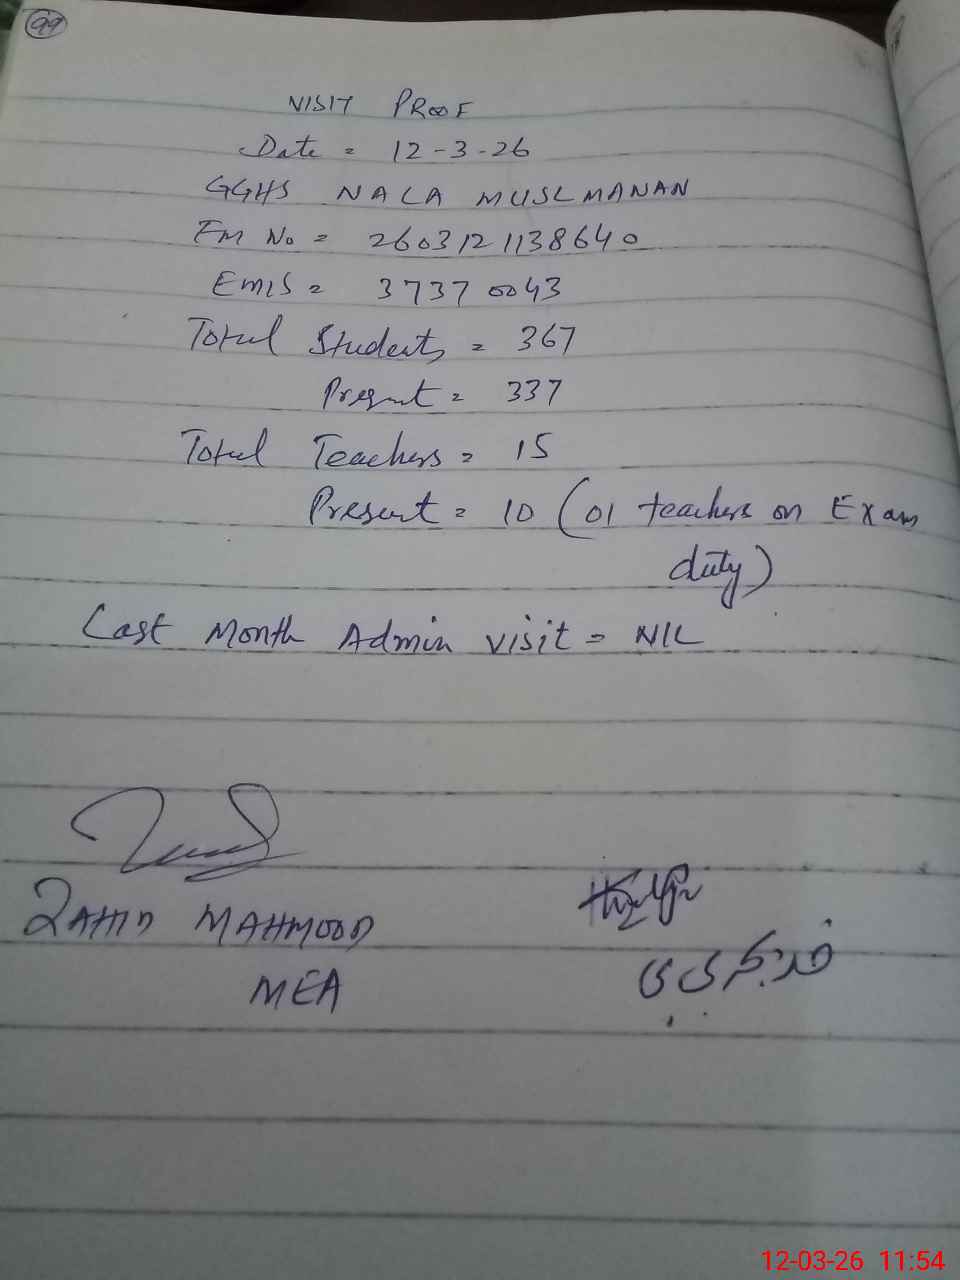 99
VISIT PROOF
Date = 12-3-26
GGHS NALA MUSLMANAN
FM No = 2603121138640
EMIS = 37370043
Total Students = 367
Present = 337
Total Teachers = 15
Present = 10 (01 teachers on Exam
duty)
Last Month Admin visit = NIL
ZAHID MAHMOOD
MEA
خدیجہ بی بی
12-03-26 11:54